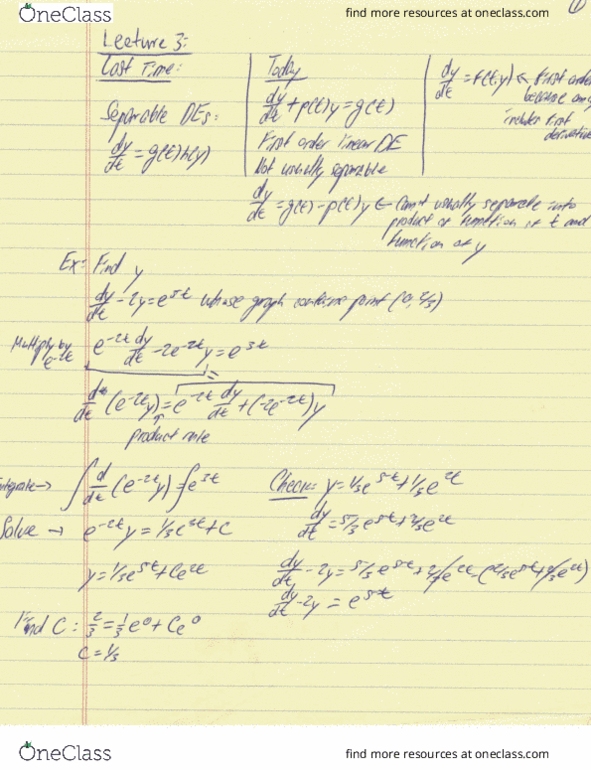 OneClass
find more resources at oneclass.com
1
Lecture 3:
Last Time:
Separable DEs:
dy/dt = g(t)h(y)
Today
dy/dt + p(t)y = g(t)
First order linear DE
Not usually separable
dy/dt = g(t) - p(t)y ← Can't usually separate into
product of function of t and
function of y
dy/dt = f(t,y) ← First order
because only
includes first
derivative
Ex: Find y
dy/dt - 2y = e^5t whose graph contains point (0, 2/3)
Multiply by
e^-2t
e^-2t dy/dt - 2e^-2t y = e^3t
=
d/dt (e^-2t y) = e^-2t dy/dt + (-2e^-2t)y
product rule
Integrate → ∫ d/dt (e^-2t y) = ∫ e^3t
Solve → e^-2t y = 1/3 e^3t + C
y = 1/3 e^5t + Ce^2t
Find C: 2/3 = 1/3 e^0 + Ce^0
C = 1/3
Check: y = 1/3 e^5t + 1/3 e^2t
dy/dt = 5/3 e^5t + 2/3 e^2t
dy/dt - 2y = 5/3 e^5t + 2/3 e^2t - (2/3 e^5t + 2/3 e^2t)
dy/dt - 2y = e^5t
OneClass
find more resources at oneclass.com